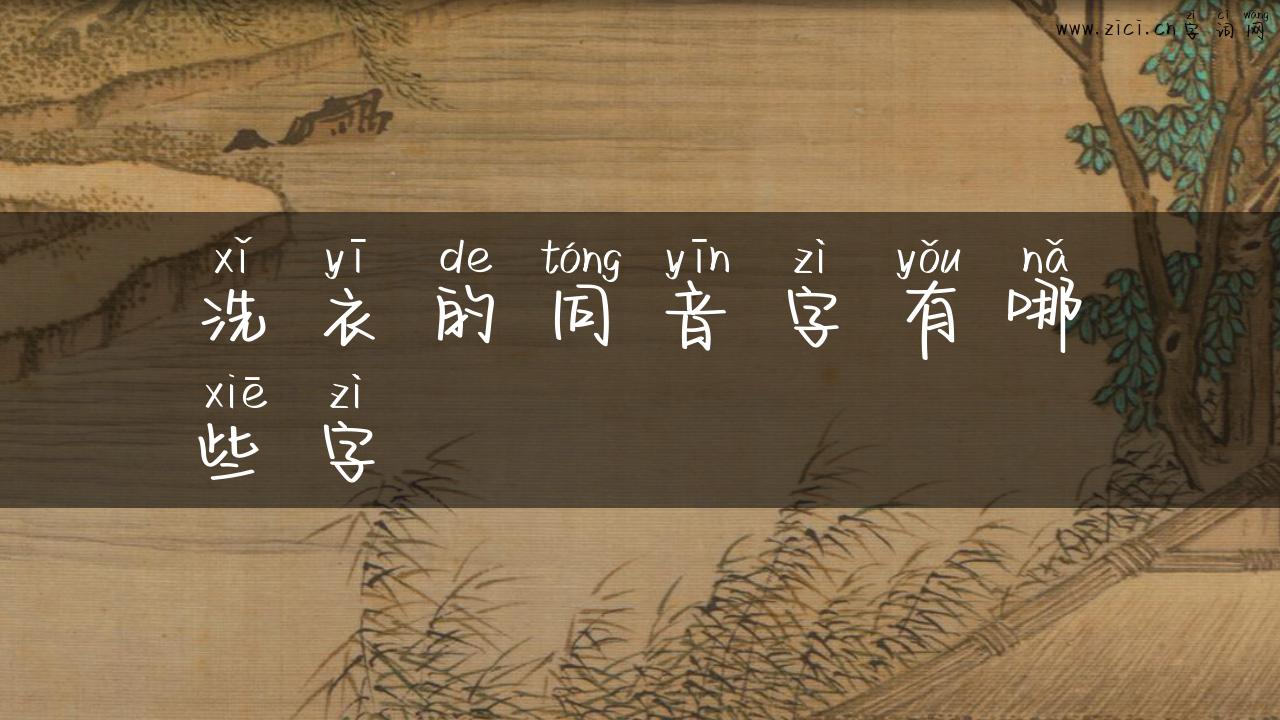 zì cí wǎng
www.zici.cn字词网
xǐ yī de tóng yīn zì yǒu nǎ
洗衣的同音字有哪
xiē zì
些字